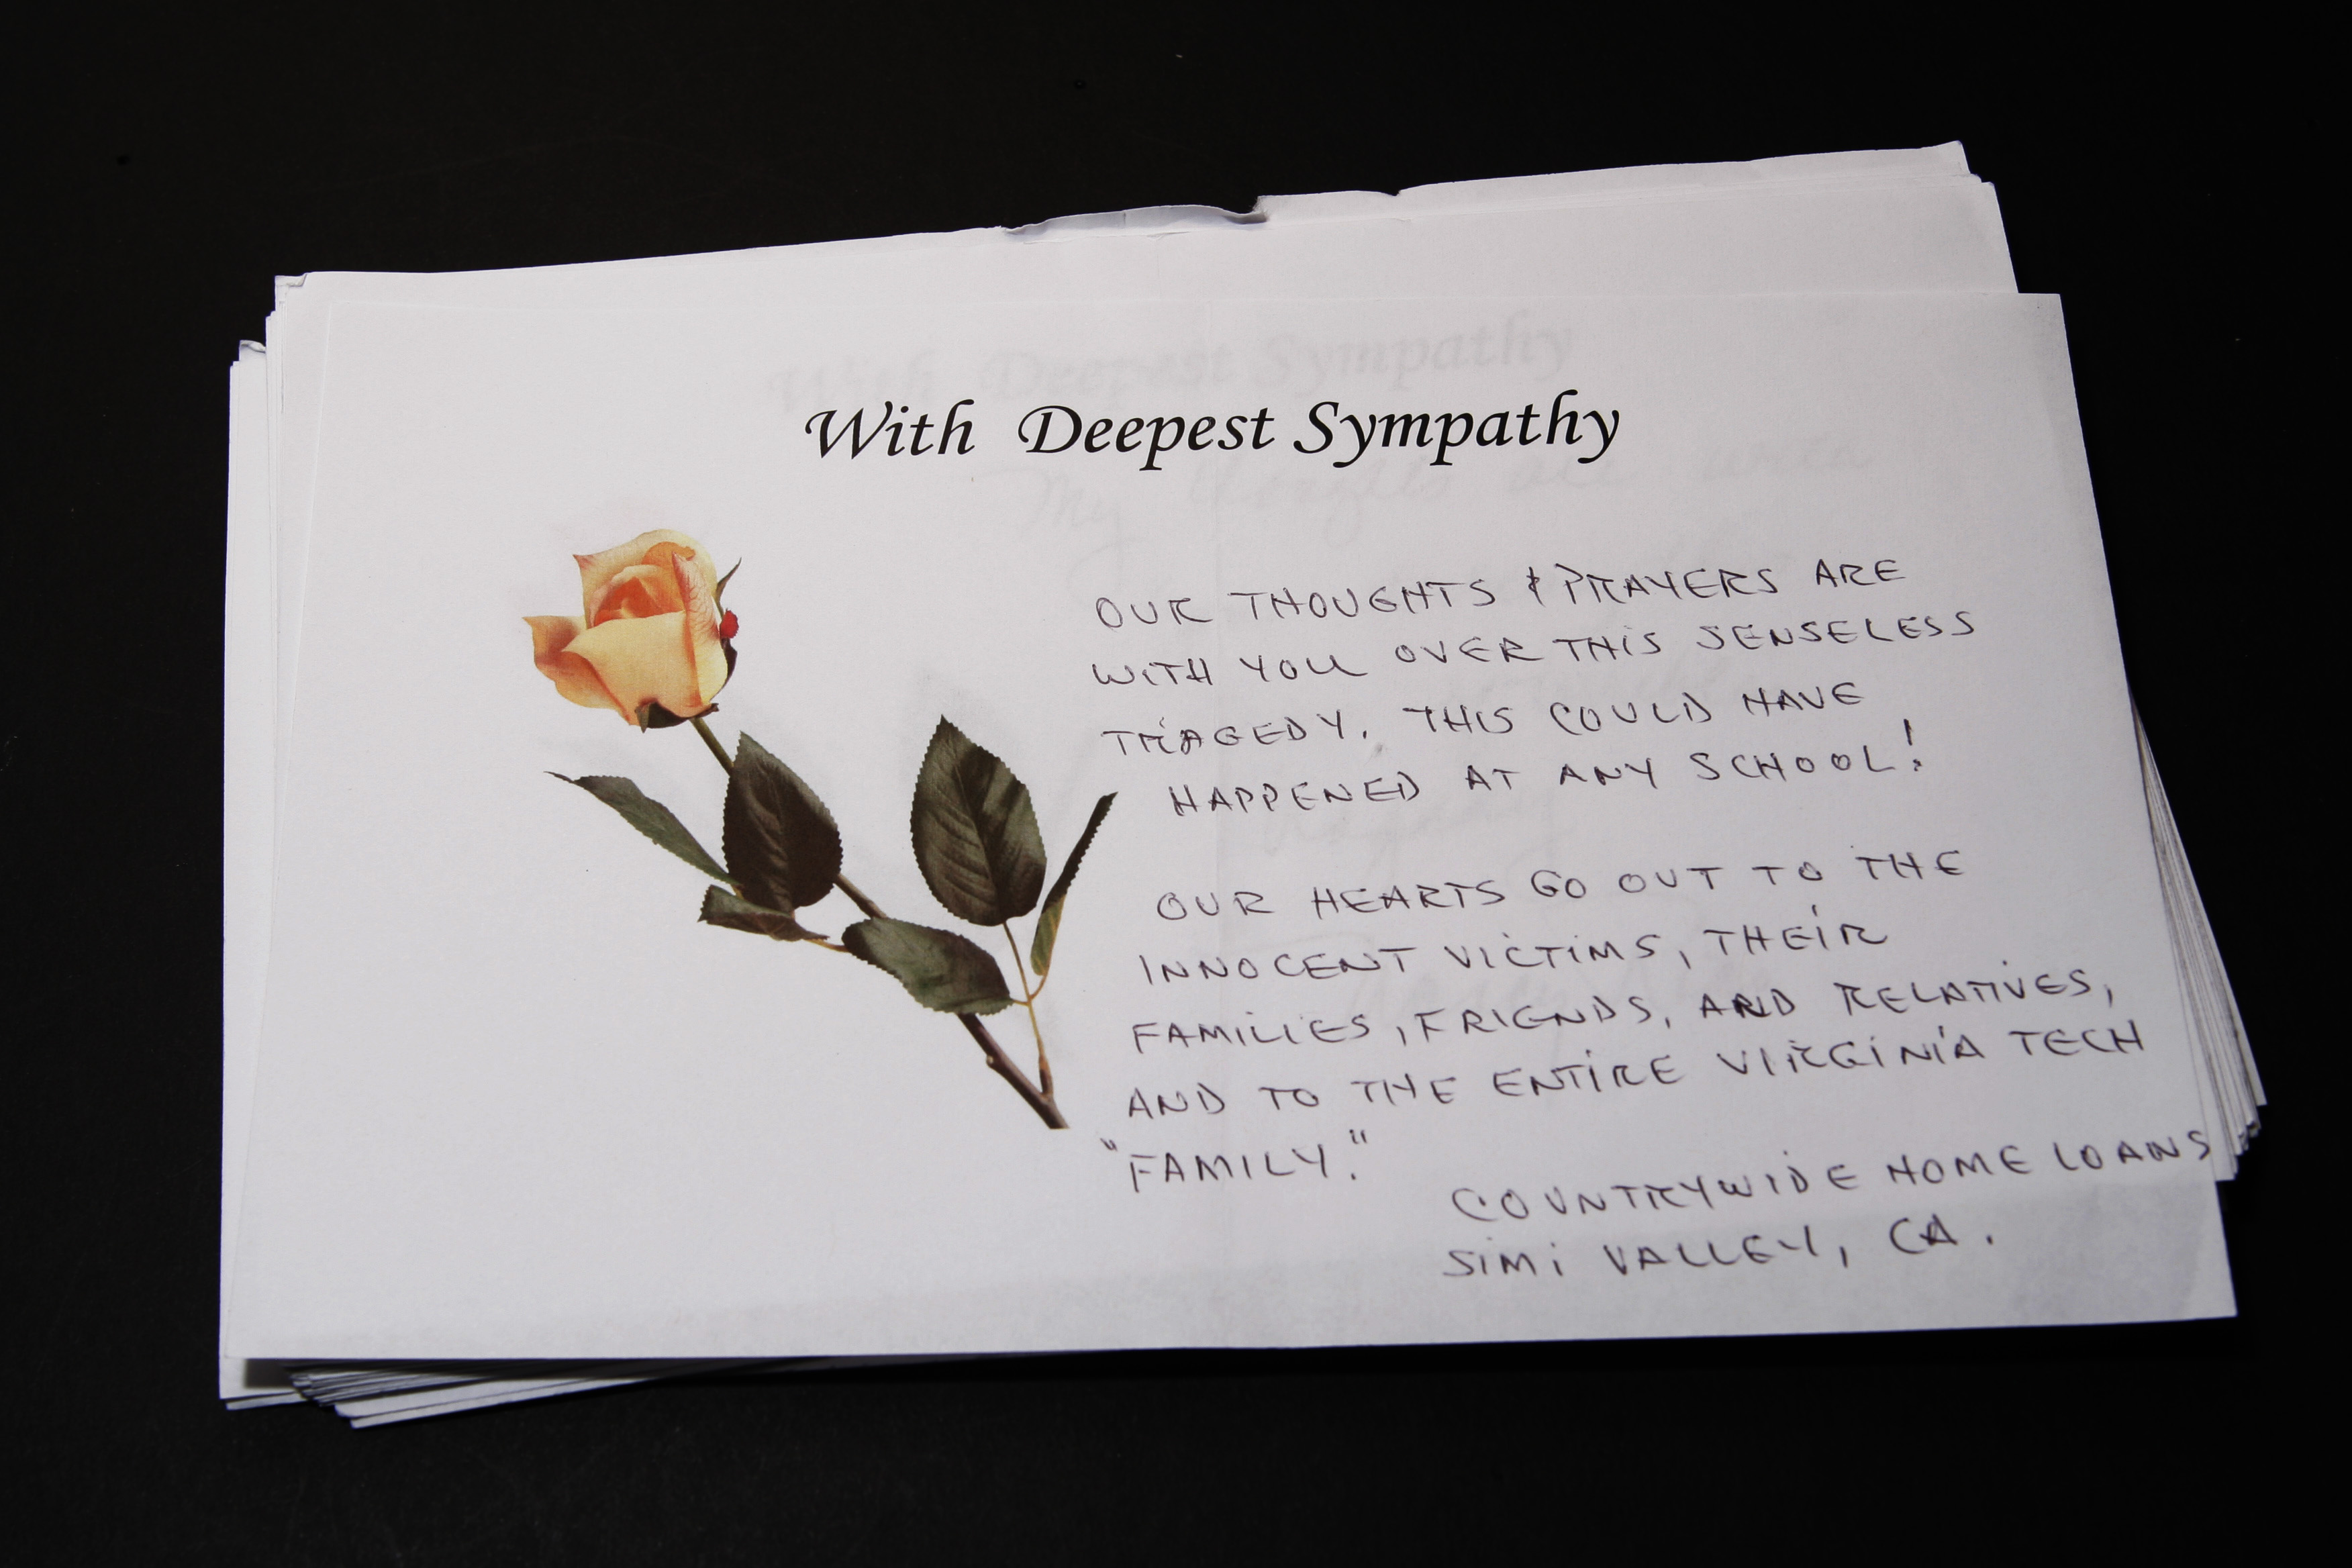 With Deepest Sympathy
OUR THOUGHTS & PRAYERS ARE
WITH YOU OVER THIS SENSELESS
TRAGEDY. THIS COULD HAVE
HAPPENED AT ANY SCHOOL!
OUR HEARTS GO OUT TO THE
INNOCENT VICTIMS, THEIR
FAMILIES, FRIENDS, AND RELATIVES,
AND TO THE ENTIRE VIRGINIA TECH
"FAMILY."
COUNTRYWIDE HOME LOANS
SIMI VALLEY, CA.